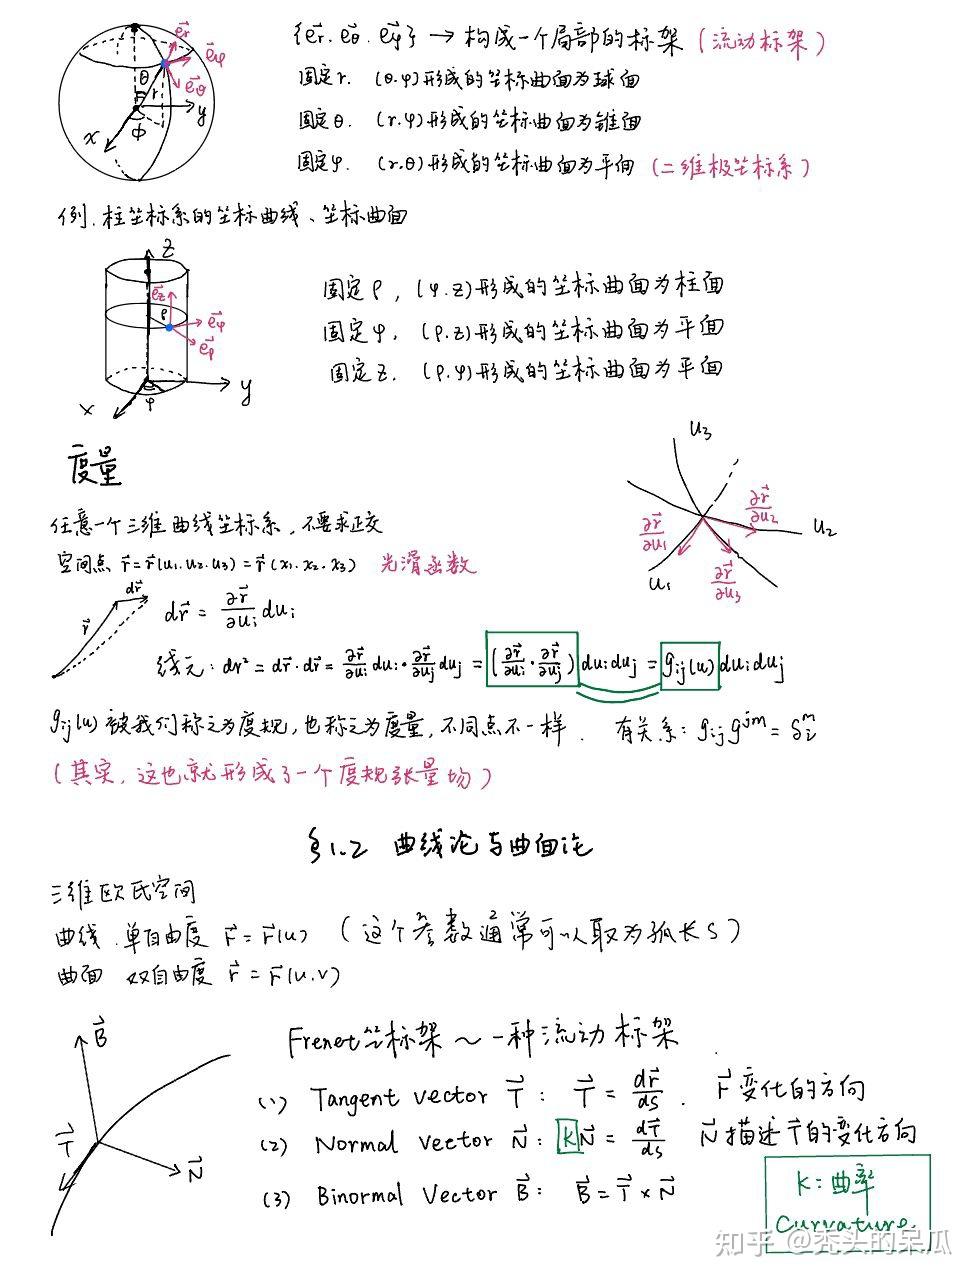 {e⃗r. e⃗θ. e⃗φ} → 构成一个局部的标架 (流动标架)
固定r. (θ.φ)形成的坐标曲面为球面
固定θ. (r.φ)形成的坐标曲面为锥面
固定φ. (r.θ)形成的坐标曲面为平面 (二维极坐标系)
e⃗r
e⃗φ
e⃗θ
θ
r
y
x
ϕ
例.柱坐标系的坐标曲线、坐标曲面
z
e⃗z
ρ
e⃗φ
e⃗ρ
y
x
φ
固定ρ, (φ.z)形成的坐标曲面为柱面
固定φ, (ρ.z)形成的坐标曲面为平面
固定z. (ρ.φ)形成的坐标曲面为平面
度量
u3
∂r⃗/∂u2
u2
∂r⃗/∂u1
u1
∂r⃗/∂u3
任意一个三维曲线坐标系,不要求正交
空间点 r⃗=r⃗(u1.u2.u3)=r⃗(x1.x2.x3) 光滑函数
dr⃗
r⃗
dr⃗ = ∂r⃗/∂ui dui
线元: dr² = dr⃗·dr⃗ = ∂r⃗/∂ui dui · ∂r⃗/∂uj duj = (∂r⃗/∂ui · ∂r⃗/∂uj) dui duj = gij(u) dui duj
gij(u) 被我们称之为度规,也称之为度量,不同点不一样. 有关系: gij g^jm = δi^m
(其实,这也就形成了一个度规张量场)
§1.2 曲线论与曲面论
三维欧氏空间
曲线.单自由度 r⃗=r⃗(u) (这个参数通常可以取为弧长s)
曲面 双自由度 r⃗=r⃗(u.v)
B⃗
T⃗
N⃗
Frenet坐标架～一种流动标架
(1) Tangent vector T⃗: T⃗ = dr⃗/ds. r⃗变化的方向
(2) Normal vector N⃗: kN⃗ = dT⃗/ds N⃗描述T⃗的变化方向
(3) Binormal Vector B⃗: B⃗=T⃗×N⃗
k:曲率
Curvature
知乎 @秃头的呆瓜